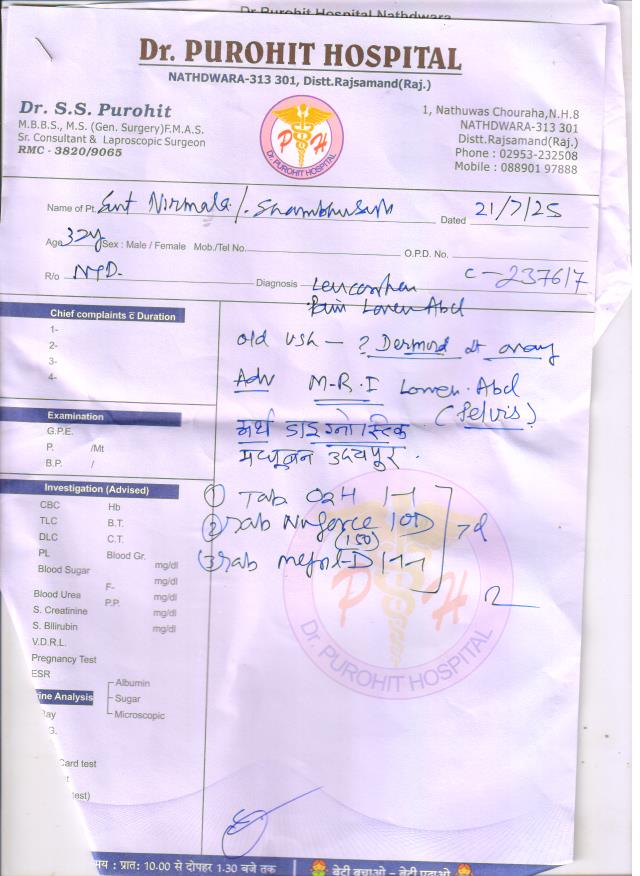 Dr Purohit Hospital Nathdwara
Dr. PUROHIT HOSPITAL
NATHDWARA-313 301, Distt.Rajsamand(Raj.)
Dr. S.S. Purohit
M.B.B.S., M.S. (Gen. Surgery)F.M.A.S.
Sr. Consultant & Laproscopic Surgeon
RMC - 3820/9065
P H
Dr. PUROHIT HOSPITAL
1, Nathuwas Chouraha,N.H.8
NATHDWARA-313 301
Distt.Rajsamand(Raj.)
Phone : 02953-232508
Mobile : 088901 97888
Name of Pt. Smt Nirmala /. Dated 21/7/25
Age 32y Sex : Male / Female Mob./Tel No. O.P.D. No.
R/o NTD. Diagnosis C-23767
Pain Lower Abd
Chief complaints c̄ Duration
1-
2-
3-
4-
old USG - ? Dermoid ovary
Adv M.R.I Lower. Abd
(Pelvis)
अर्थ डाइग्नोस्टिक
मधुबन उदयपुर.
Examination
G.P.E.
P. /Mt
B.P. /
① Tab O2H 1-1
② Tab Niforce 1 OD
(150)
③ Tab Meftal-D 1-1-1
7d
Investigation (Advised)
CBC Hb
TLC B.T.
DLC C.T.
PL Blood Gr.
Blood Sugar mg/dl
F- mg/dl
Blood Urea P.P. mg/dl
S. Creatinine mg/dl
S. Bilirubin mg/dl
V.D.R.L.
Pregnancy Test
ESR
ine Analysis
Albumin
Sugar
Microscopic
ay
G.
Card test
t
test)
P H
Dr. PUROHIT HOSPITAL
मय : प्रातः 10.00 से दोपहर 1.30 बजे तक
बेटी बचाओ - बेटी पढ़ाओ